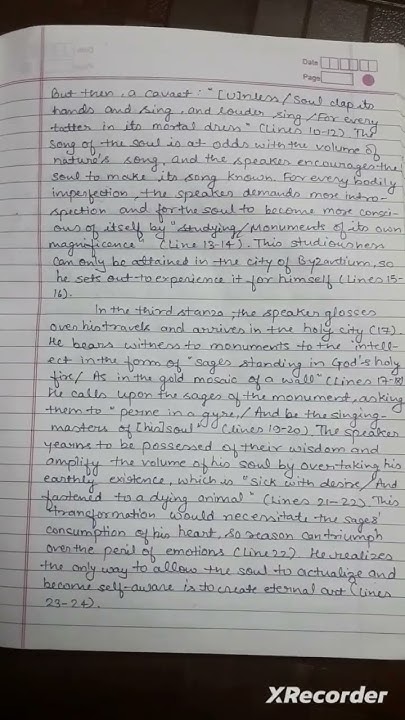 Date
Page
But then, a cavaet: "[U]nless/Soul clap its
hands and sing, and louder sing/For every
tatter in its mortal dress" (Lines 10-12) The
song of the soul is at odds with the volume of
nature's song, and the speaker encourages the
soul to make its song known. For every bodily
imperfection, the speaker demands more intro-
spection and for the soul to become more consci-
ous of itself by "studying/Monuments of its own
magnificence" (Line 13-14). This studiousness
can only be attained in the city of Byzantium, so
he sets out to experience it for himself (Lines 15-
16).
In the third stanza, the speaker glosses
over his travels and arrives in the holy city (17).
He bears witness to monuments to the intell-
ect in the form of "sages standing in God's holy
fire/ As in the gold mosaic of a wall" (Lines 17-18)
He calls upon the sages of the monument, asking
them to "perne in a gyre,/ And be the singing-
masters of [his] soul" (Lines 19-20). The speaker
yearns to be possessed of their wisdom and
amplify the volume of his soul by overtaking his
earthly existence, which is "sick with desire/And
fastened to a dying animal" (Lines 21-22). This
transformation would necessitate the sages'
consumption of his heart, so reason can triumph
over the peril of emotions (Line 22). He realizes
the only way to allow the soul to actualize and
become self-aware is to create eternal art (Lines
23-24).
XRecorder